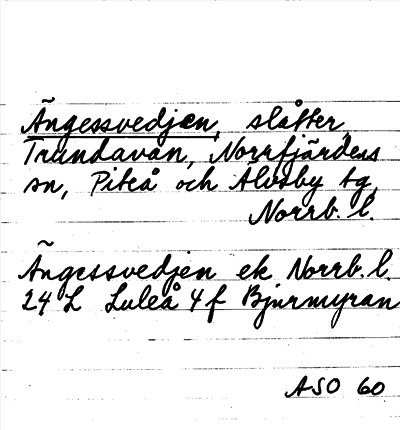 Ängessvedjen, slåtter,
Trundavan, Norrfjärdens
sn, Piteå och Älvsby tg,
Norrb. l.
Ängessvedjen ek Norrb. l.
24 L Luleå 4 f Bjurmyran
ASO 60